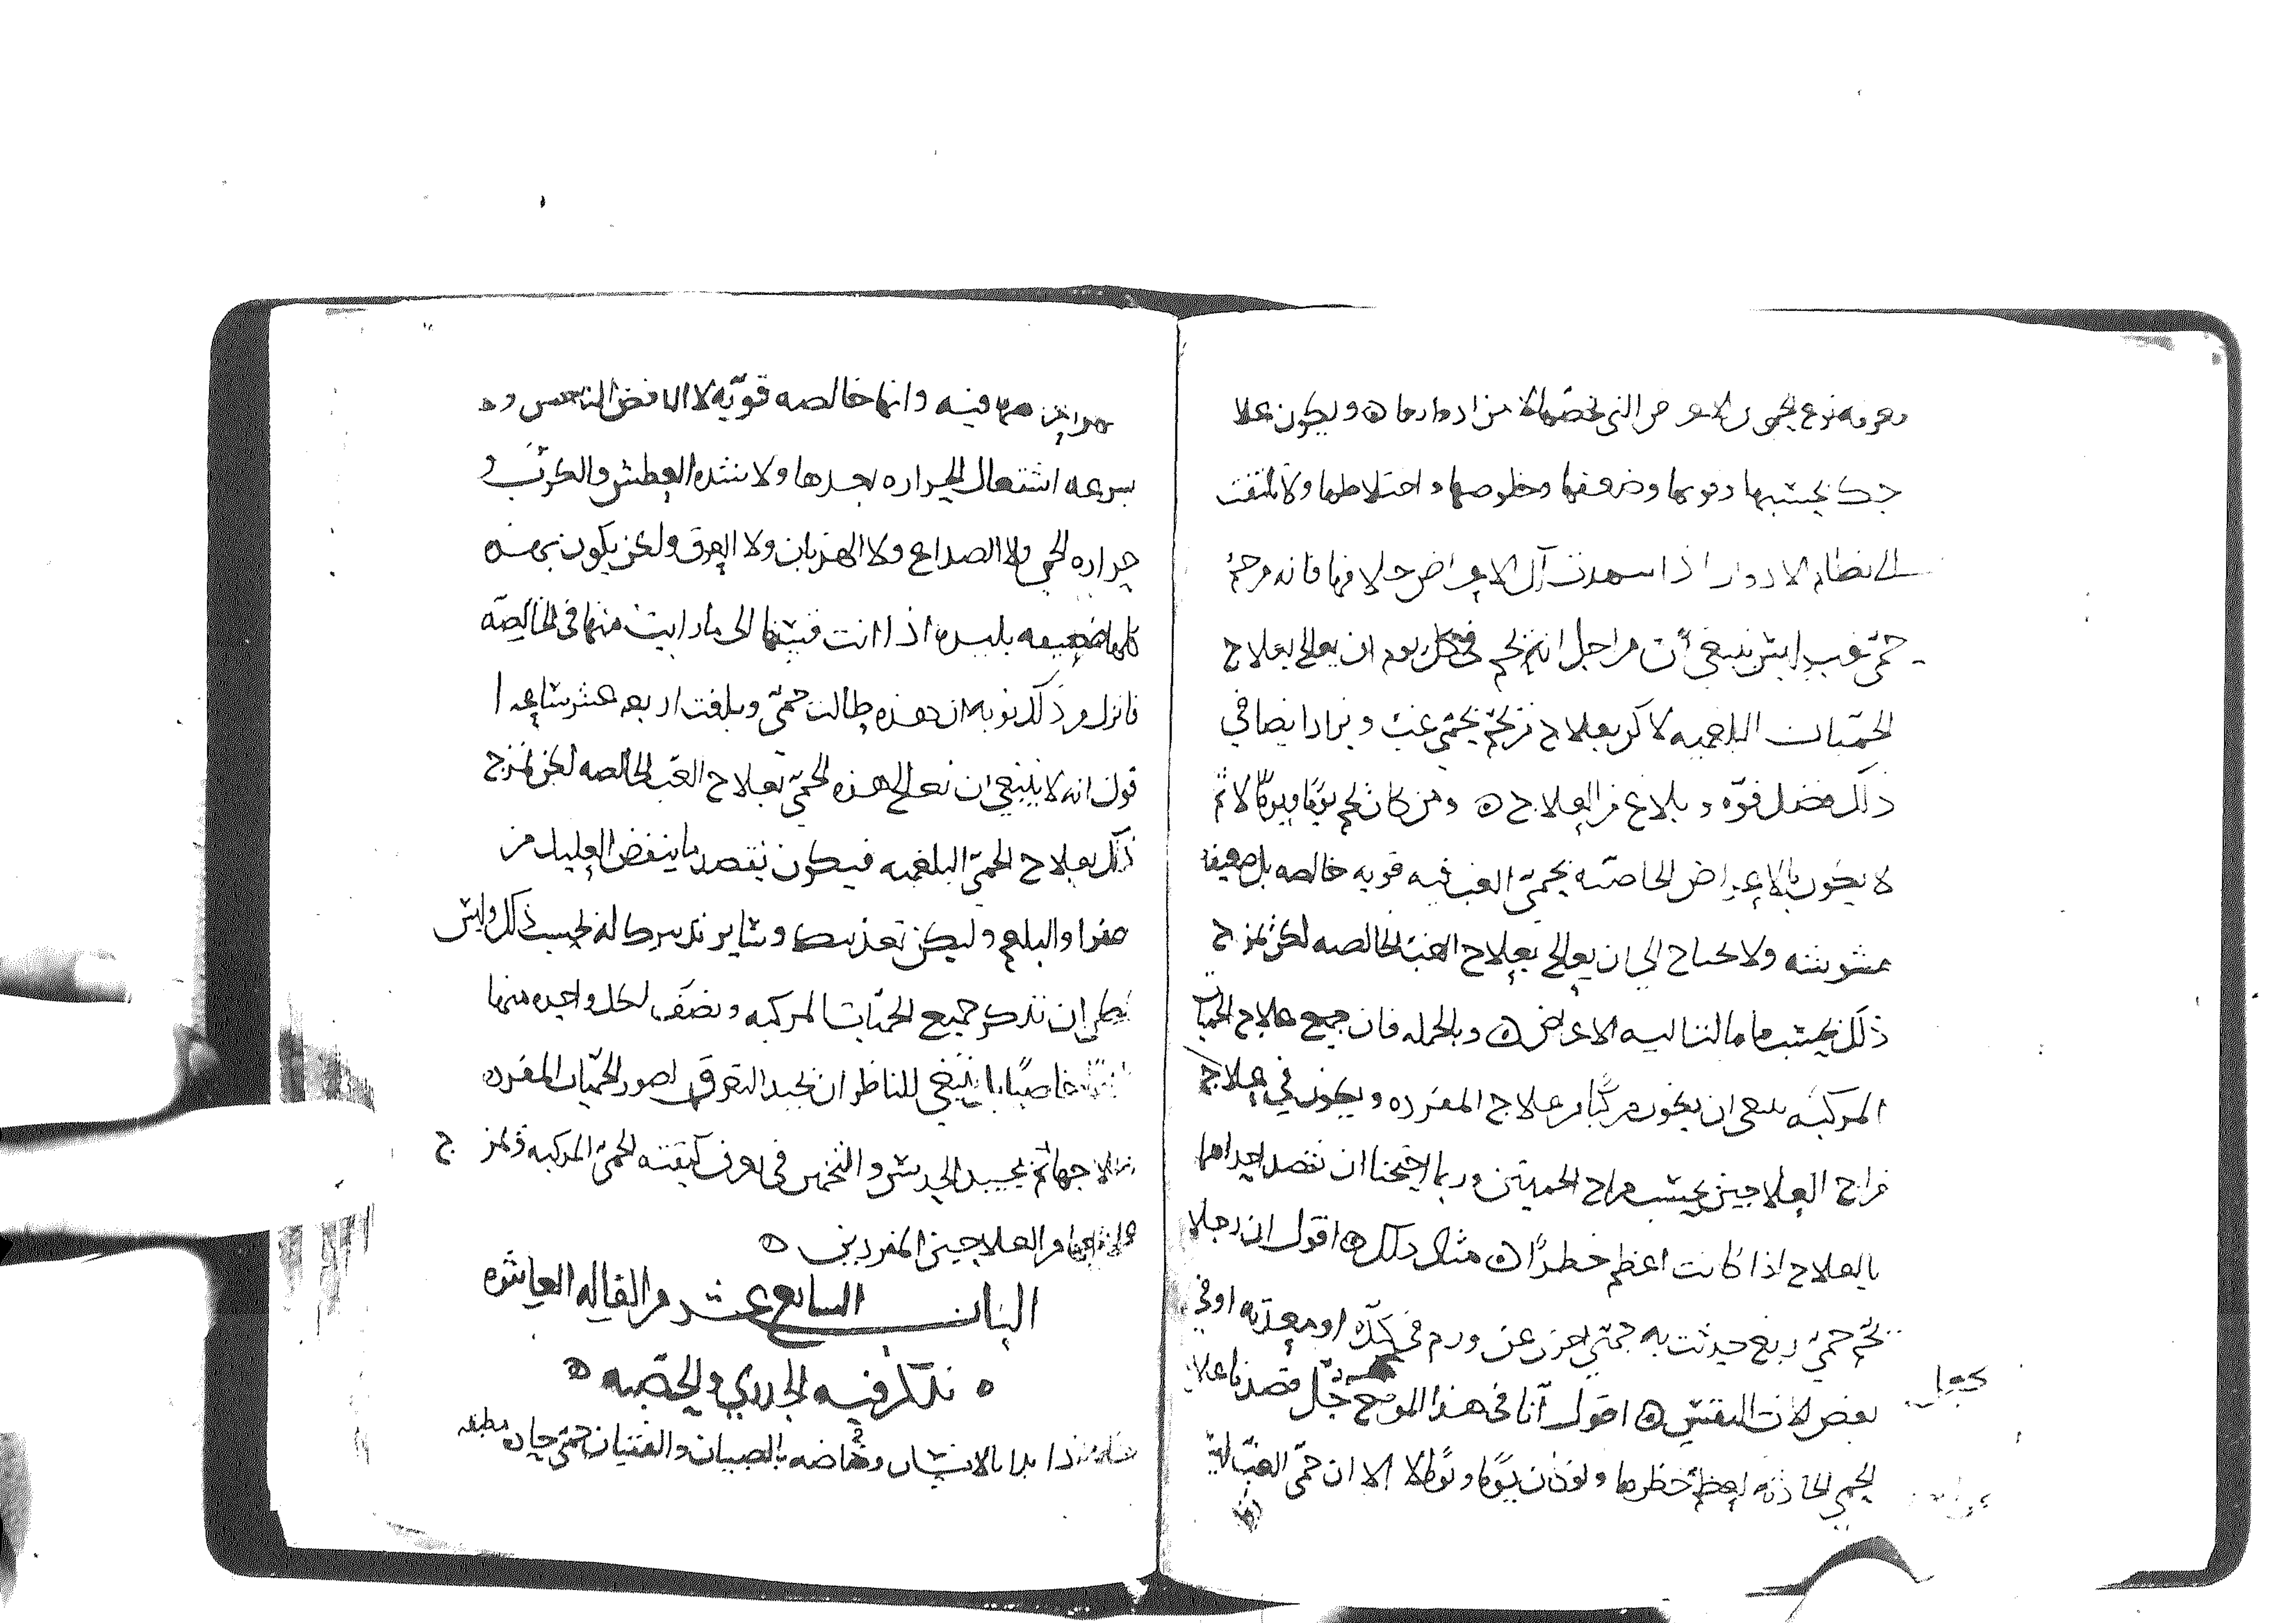 ومعرفه نوع الحمى الاعراض التي تخصها لا من ادوارها ه ويكون علا
جك بحسبها وقوتها وضعفها وخلوصها واختلاطها ولا تلتفت
الى نظام الادوار اذا شهدت لك الاعراض خلافها فانه من حم
حمى غب ليس ينبغي لك من اجل انه يحم في كل يوم ان يعالج بعلاج
الحميات البلغميه لاكن بعلاج من يحم بحمى غب ويزاد ايضا في
ذلك فضل قوه وبلاغ من العلاج ه ومن كان يحم يوما ويوما لا ثم
لا يكون بالاعراض الخاصيه بحمى الغب فيه قويه خالصه بل ضعيفه
مشوشه ولا يحتاج الى ان يعالج بعلاج الغب الخالصه لكن يمزج
ذلك بحسب ما مالت اليه الاعراض ه وبالجمله فان جميع علاج الحميات
المركبه ينبغي ان يكون مركبا من علاج المفرده ويكون في علاج
مزاج العلاجين بحسب مزاج الحميتين وربما احتجنا ان نقصد احداهما
بالعلاج اذا كانت اعظم خطرا ه مثال ذلك ه اقول ان رجلا
يحم حمى ربع حدثت به حمى اخرى عن ورم في كبده او معدته او في
يجعل
بعض الات التنفس ه اقول انا في هذا الموضع جل قصدنا علاج
الحمى الحادثه لعظم خطرها ولو كان يوما ويوما لا الا ان حمى الغب ليس
فيه وانها خالصه قويه لا النافض الناخس و
سرعه اشتعال الحراره بعدها ولا شده العطش والكرب و
حراره الحمى ولا الصداع ولا الهذيان ولا العرق ولكن يكون بهذه
كلها ضعيفه بليده اذا انت قستها الى ما رايت منها في الخالصه
فانزل من ذلك نوبه ان هذه طالت حمى وبلغت اربعه عشر ساعه ا
قول انه لا ينبغي ان تعالج هذه الحمى بعلاج الغب الخالصه لكن تمزج
ذلك بعلاج الحمى البلغميه فيكون تقصد ما ينفض العليل من
صفرا والبلغم وليكن تغذيتك وساير تدبيرك له بحسب ذلك وليس
ان نذكر جميع الحميات المركبه ونصف لكل واحده منها
خاصيا بل ينبغي للناظر ان يجيد التعرف لصور الحميات المفرده
وعلاجها ثم يجيد الحدس والتخمين في تعرف كيفيه الحمى المركبه ويمزج
علاجها من العلاجين المفردين ه
الباب السابع عشر من المقاله العاشره
ه نذكر فيه الجدري والحصبه ه
بالانسان وخاصه بالصبيان والفتيان حمى حاده مطبقه